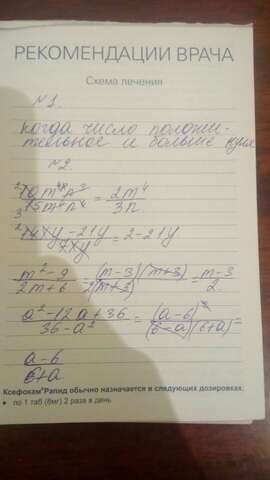 РЕКОМЕНДАЦИИ ВРАЧА
Схема лечения
№1.
Когда число положи-
тельное и больше нуля
№2.
= 2m⁴/3n
14xy-21y/7xy = 2-21y
m²-9/2m+6 = (m-3)(m+3)/2(m+3) = m-3/2
a²-12a+36/36-a² = (a-6)²/(6-a)(6+a) =
a-6/6+a
Ксефокам® Рапид обычно назначается в следующих дозировках:
• по 1 таб (8мг) 2 раза в день